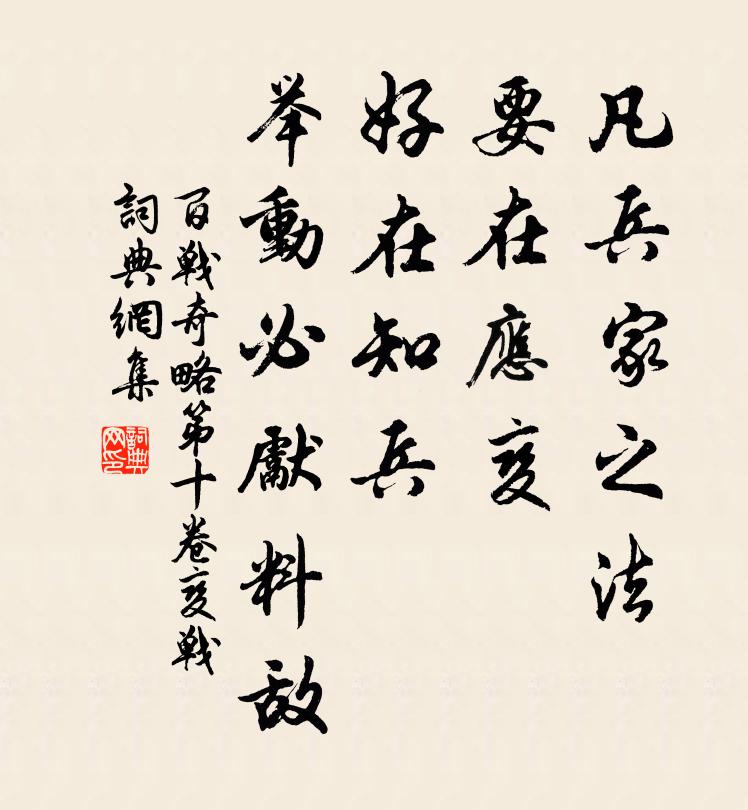 凡兵家之法
要在應变
好在知兵
举動必獻料敌
百战奇略第十卷变战
詞典網集
詞典网印